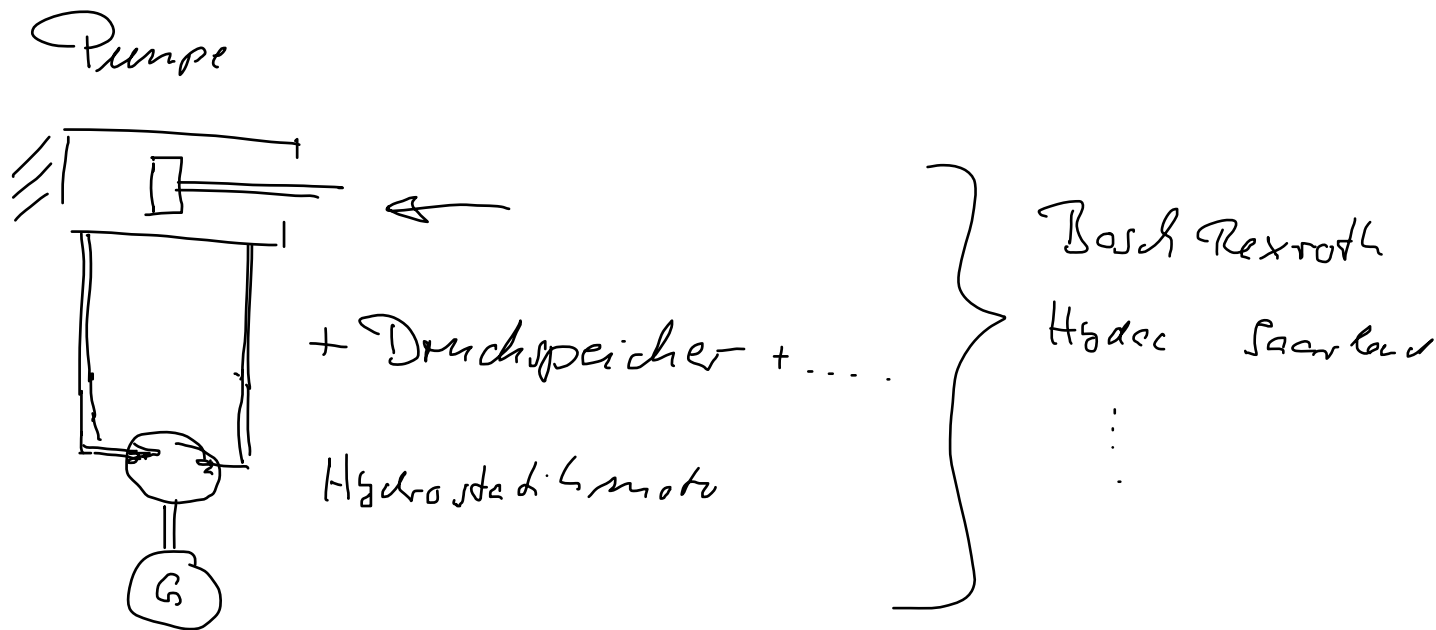 Pumpe
+ Druckspeicher + ....
Hydrostatikmotor
G
Bosch Rexroth
Hydac Saarland